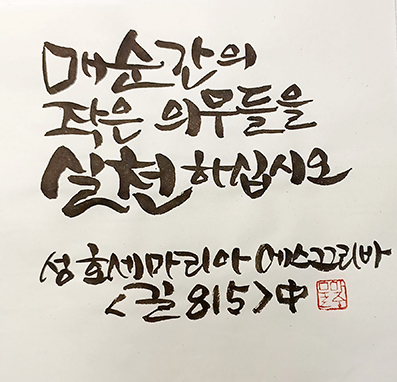 매순간의
작은 의무들을
실천하십시오
성 호세마리아 에스끄리바
<길 815>中